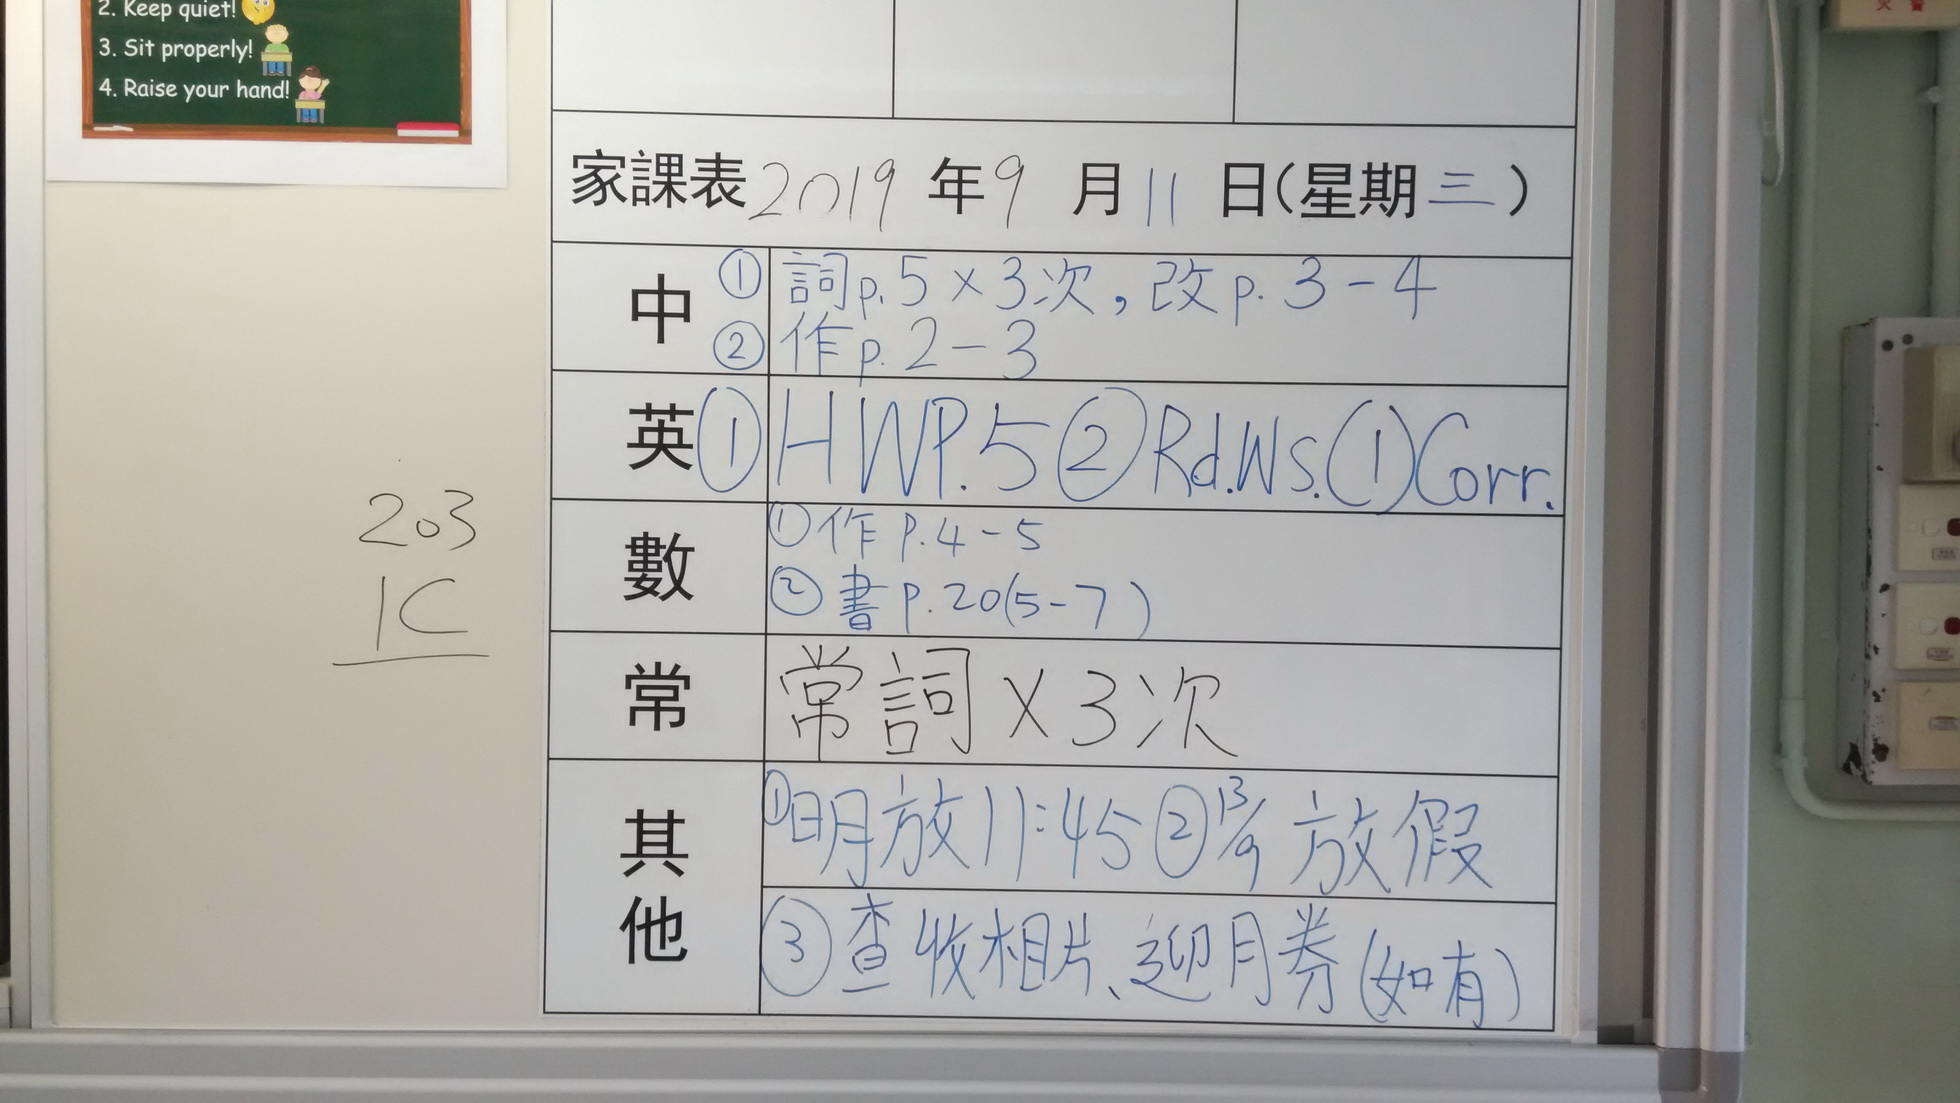 2. Keep quiet!
3. Sit properly!
4. Raise your hand!
家課表2019年9月11日(星期三)
中 ① 詞p.5×3次,改p.3-4
② 作p.2-3
英 ① HWP.5 ② Rd.WS.(1)Corr.
數 ①作P.4-5
②書P.20(5-7)
常 常詞×3次
其他 ①明放11:45 ②13/9放假
③查收相片、迎月券(如有)
203
1C
火警